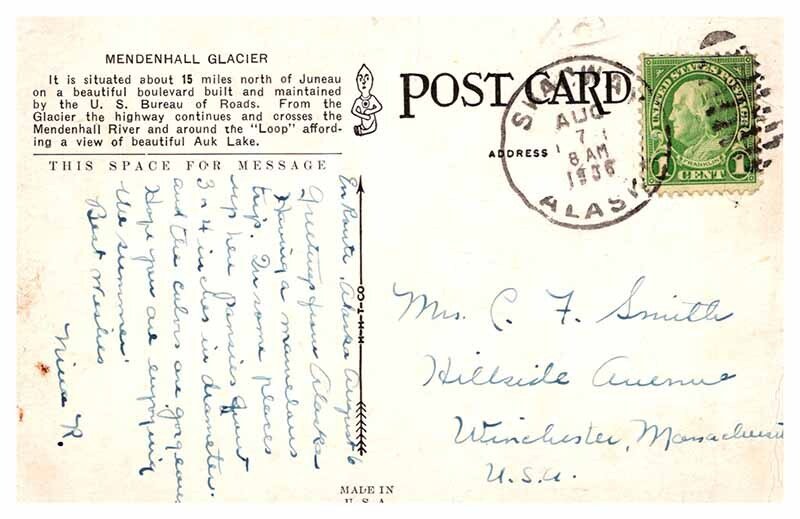 MENDENHALL GLACIER
It is situated about 15 miles north of Juneau
on a beautiful boulevard built and maintained
by the U. S. Bureau of Roads. From the
Glacier the highway continues and crosses the
Mendenhall River and around the "Loop" afford-
ing a view of beautiful Auk Lake.
THIS SPACE FOR MESSAGE
En Route, Alaska August 6
Greetings from Alaska
Having a marvelous
trip. In some places
up here Pansies grow
3 x 4 inches in diameter
and the colors are gorgeous
Hope you are enjoying
the summer.
Best Wishes
Nina R.
H-H-T-CO
MADE IN
U.S.A.
POST CARD
ADDRESS
SKAGWAY
AUG
7
8 AM
1936
ALASKA
UNITED STATES POSTAGE
FRANKLIN
1 CENT 1
Mrs. C. F. Smith
Hillside Avenue
Winchester, Massachusetts
U.S.A.